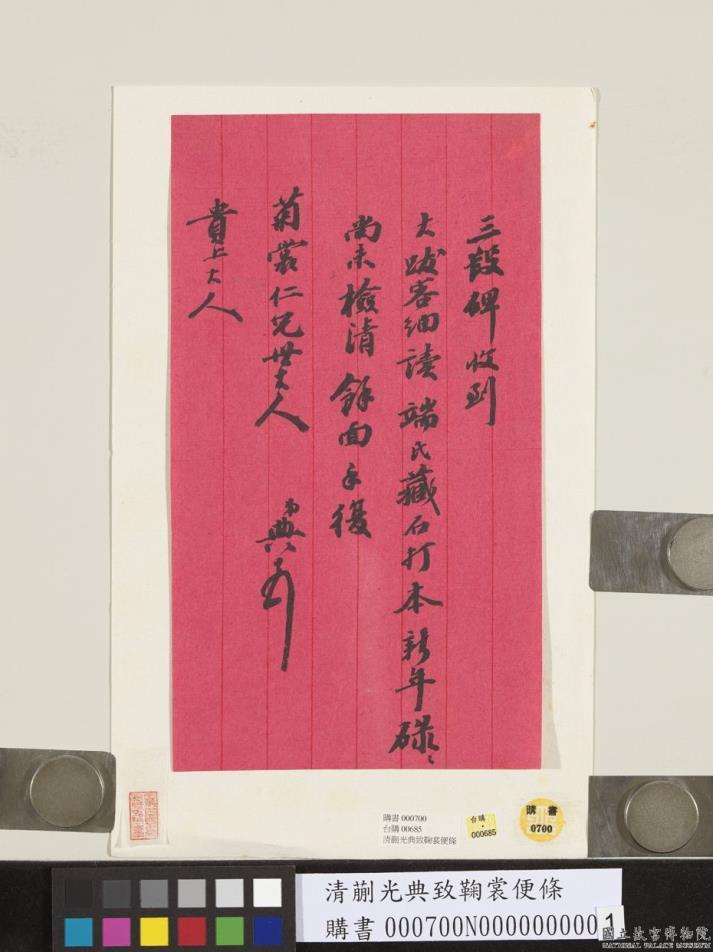 三段碑收到
大跋容細讀端氏藏石打本新年碌〻
尚未檢清餘面手復
菊裳仁兄世大人 弟典頓
貴上大人
購書 000700
台購 00685
清蒯光典致鞠裳便條
台購
000685
購書
0700
清蒯光典致鞠裳便條
購書 000700N000000000 1
國立故宮博物院
NATIONAL PALACE MUSEUM